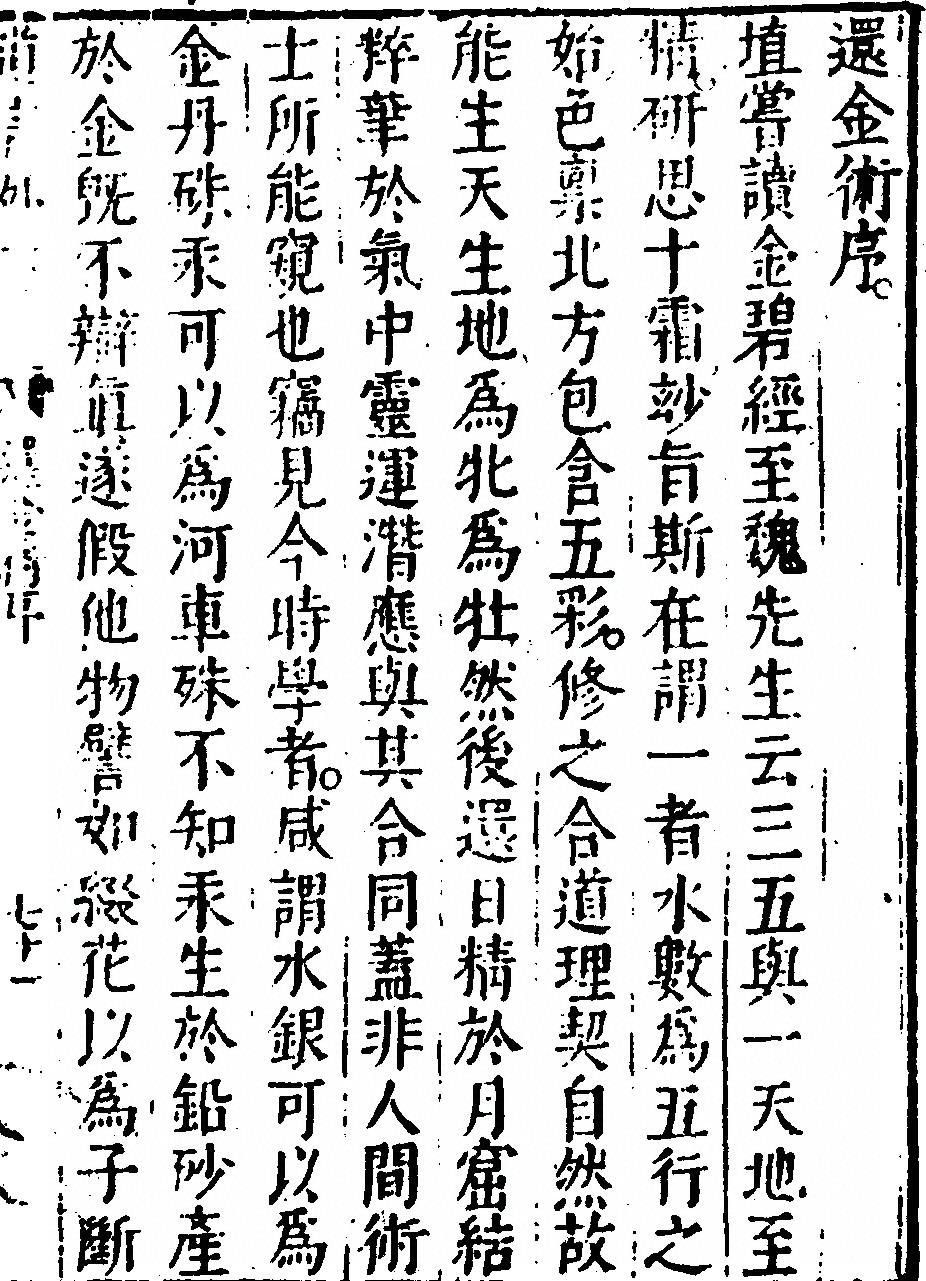 還金術序
埴嘗讀金碧經至魏先生云三五與一天地至
精研思十霜玅旨斯在謂一者水數為五行之
始色稟北方包含五彩修之合道理契自然故
能生天生地為牝為牡然後還日精於月窟結
粹華於氣中靈運潛應與其合同蓋非人間術
士所能窺也竊見今時學者咸謂水銀可以為
金丹硃汞可以為河車殊不知汞生於鉛砂產
於金旣不辯眞遂假他物譬如綴花以為子斷
七十一